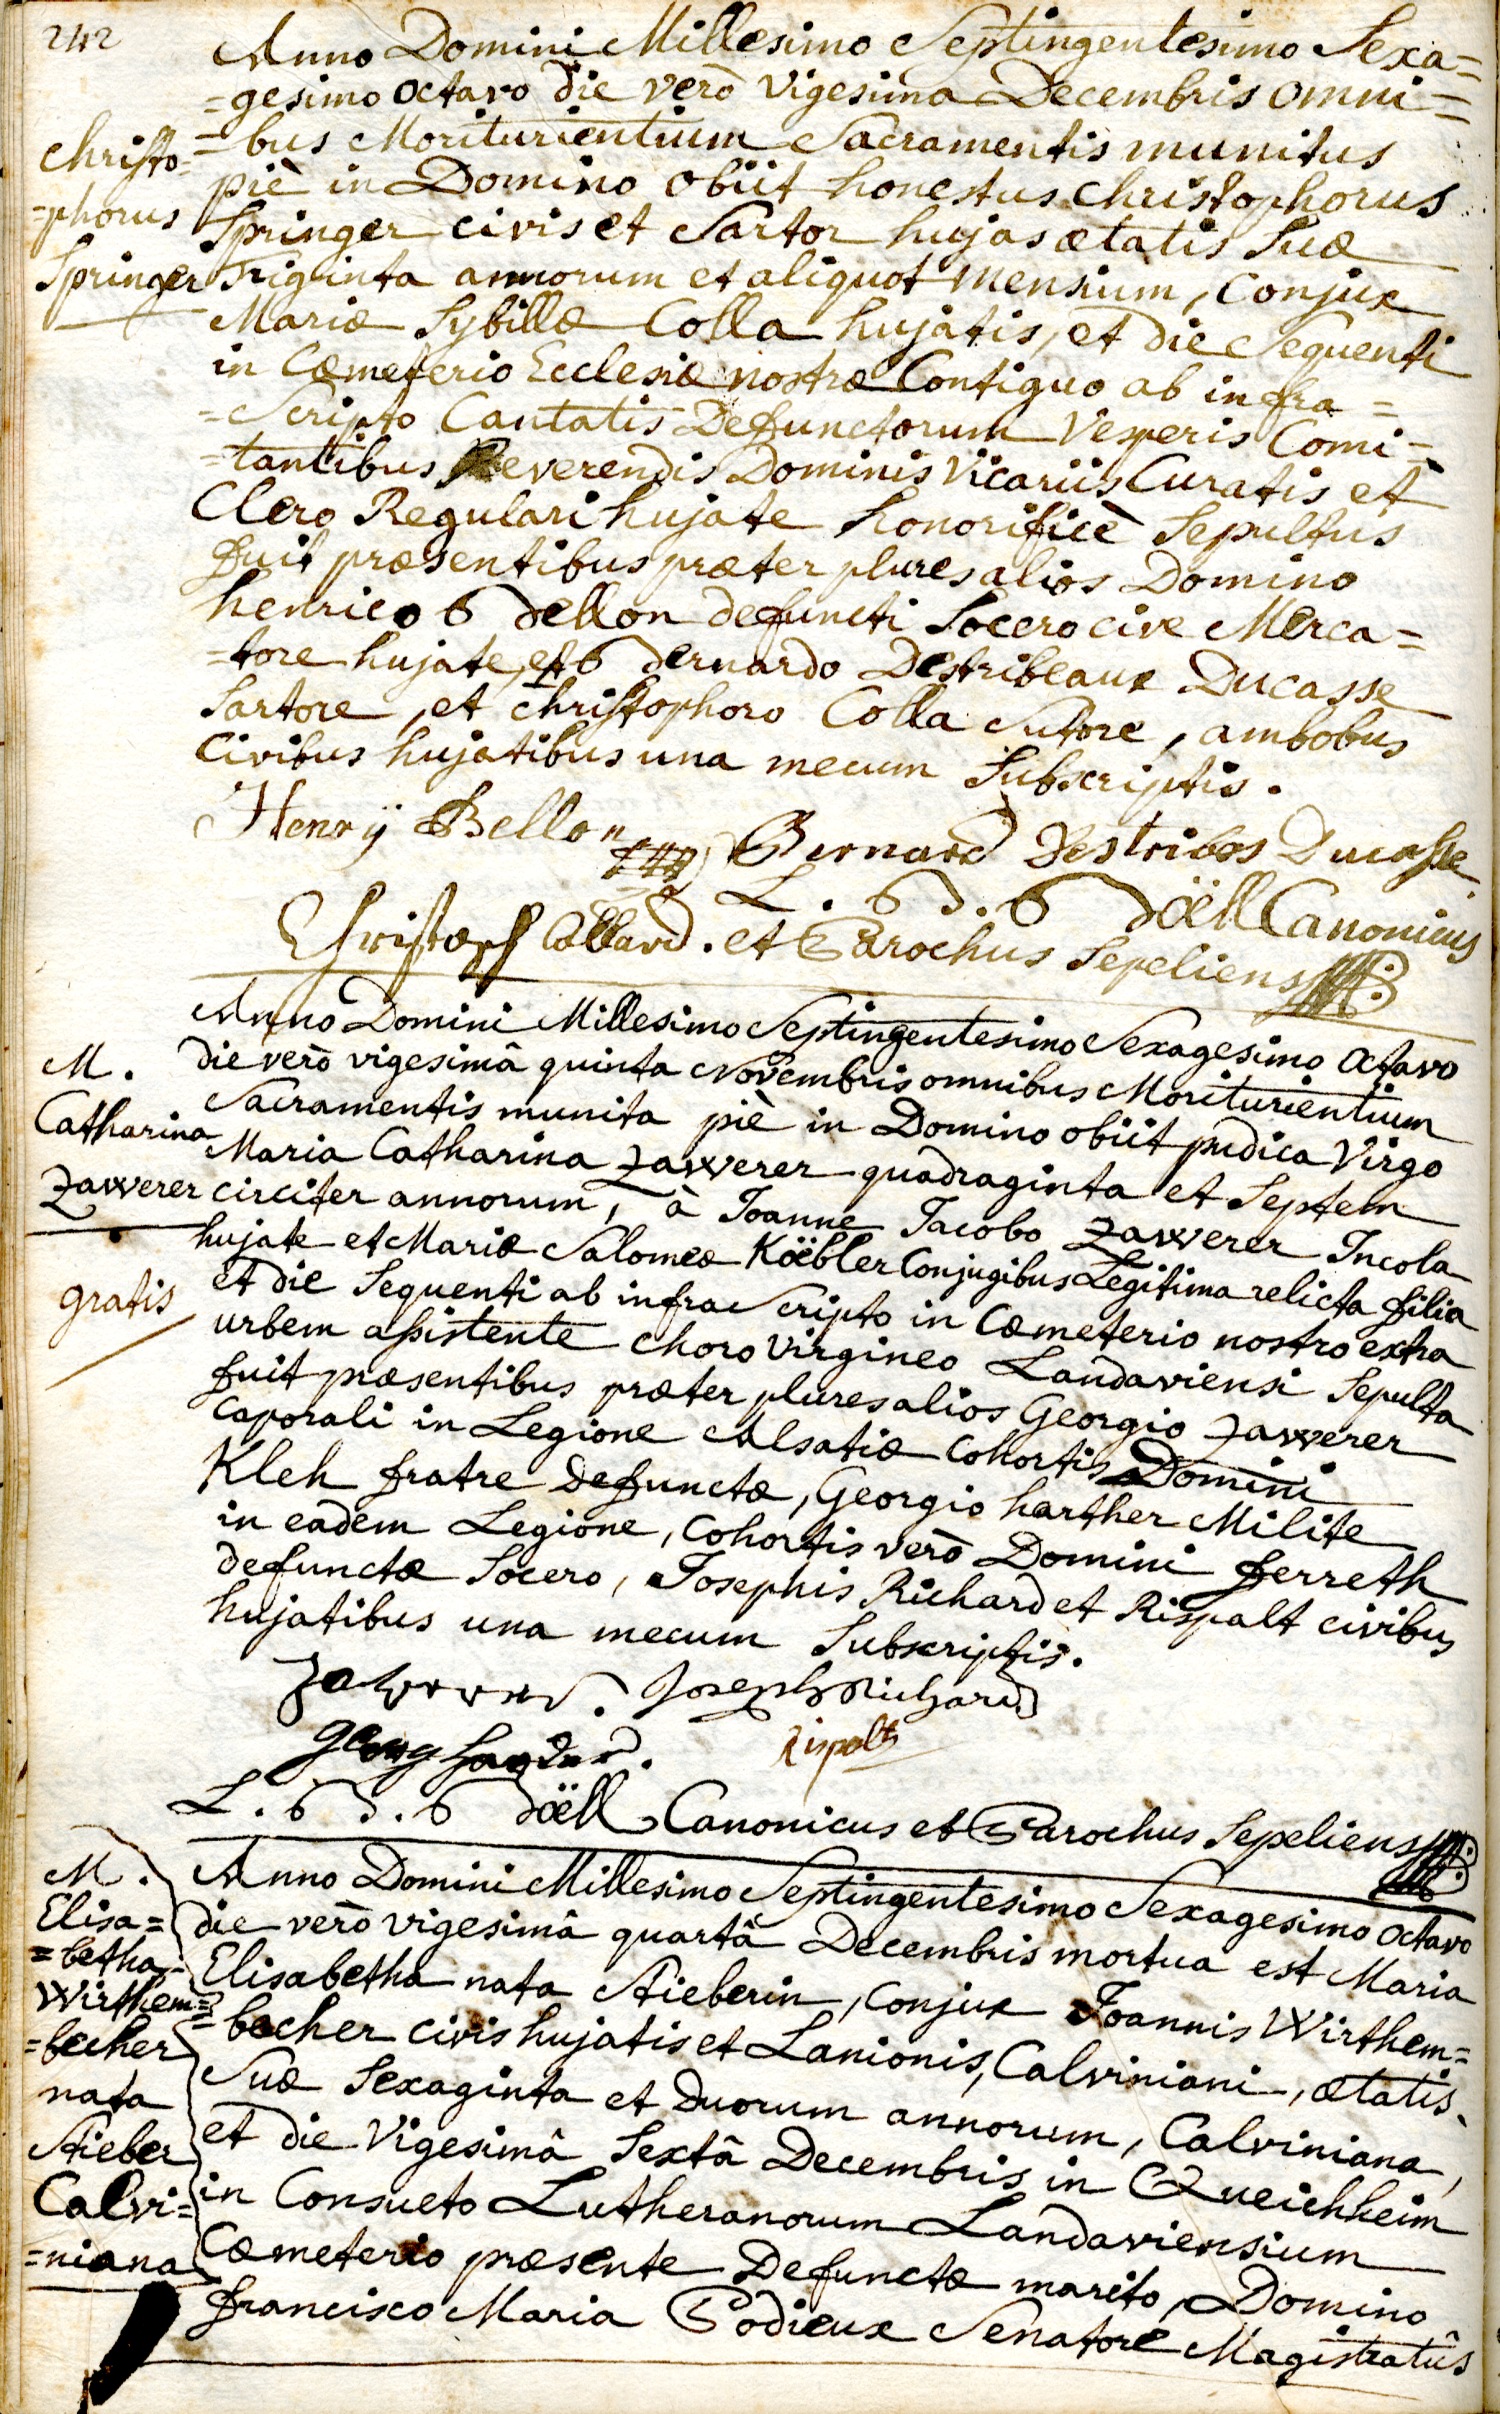 242
Anno Domini Millesimo Septingentesimo Sexa=
=gesimo octavo die verò vigesima Decembris omni=
=bus Moriturientium Sacramentis munitus
piè in Domino obiit honestus Christophorus
Springer civis et Sartor hujas ætatis suæ
Triginta annorum et aliquot mensium, conjux
Mariæ Sybillæ Colla hujatis, et die sequenti
in Cœmeterio Ecclesiæ nostræ Contiguo ab infra=
=Scripto Cantatis Defunctorum Vesperis Comi=
=tantibus Reverendis Dominis Vicariis Curatis et
Clero Regulari hujate honorificè Sepultus
fuit præsentibus præter plures alios Domino
henrico Bellon defuncti Socero cive Merca=
=tore hujate, et Bernardo Destribeaux Ducasse
Sartore, et Christophoro Colla Sutore, ambobus
Civibus hujatibus una mecum Subscriptis.
Christo=
=phorus
Springer
Henry Bellon
Bernard Destribos Ducasse
L. B. B Doëll Canonicus
Christoph Collard. et Parochus Sepeliens
Anno Domini Millesimo Septingentesimo Sexagesimo octavo
die verò vigesimâ quinta Novembris omnibus Moriturientium
Sacramentis munita piè in Domino obiit pudica Virgo
Maria Catharina Zawerer quadraginta et Septem
circiter annorum, à Joanne Jacobo Zawerer Incola
hujate et Mariæ Salomeæ Köebler Conjugibus Legitima relicta filia
et die Sequenti ab infra Scripto in Cœmeterio nostro extra
urbem assistente Choro Virgineo Landaviensi Sepulta
fuit præsentibus præter plures alios Georgio Zawerer
Caporali in Legione Alsatiæ Cohortis Domini
Kleh fratre Defunctæ, Georgio harther Milite
in eadem Legione, Cohortis verò Domini Ferreth
defunctæ Socero, Josephis Richard et Rispalt civibus
hujatibus una mecum Subscriptis.
M.
Catharina
Zawerer
gratis
Joseph Richard
Rispalt
L. B. B Doëll Canonicus et Parochus Sepeliens
Anno Domini Millesimo Septingentesimo Sexagesimo octavo
die verò vigesimâ quartâ Decembris mortua est Maria
Elisabetha nata Stieberin, conjux Joannis Wirthem=
=becher civis hujatis et Lanionis, Calviniani, ætatis
Suæ Sexaginta et duorum annorum, Calviniana,
et die Vigesimâ Sextâ Decembris in Queichheim
in Consueto Lutheranorum Landaviensium
Cœmeterio præsente Defunctæ marito, Domino
francisco Maria Podieux Senatore Magistratûs
M.
Elisa=
=betha
Wirthem=
=becher
nata
Stieber
Calvi=
=niana